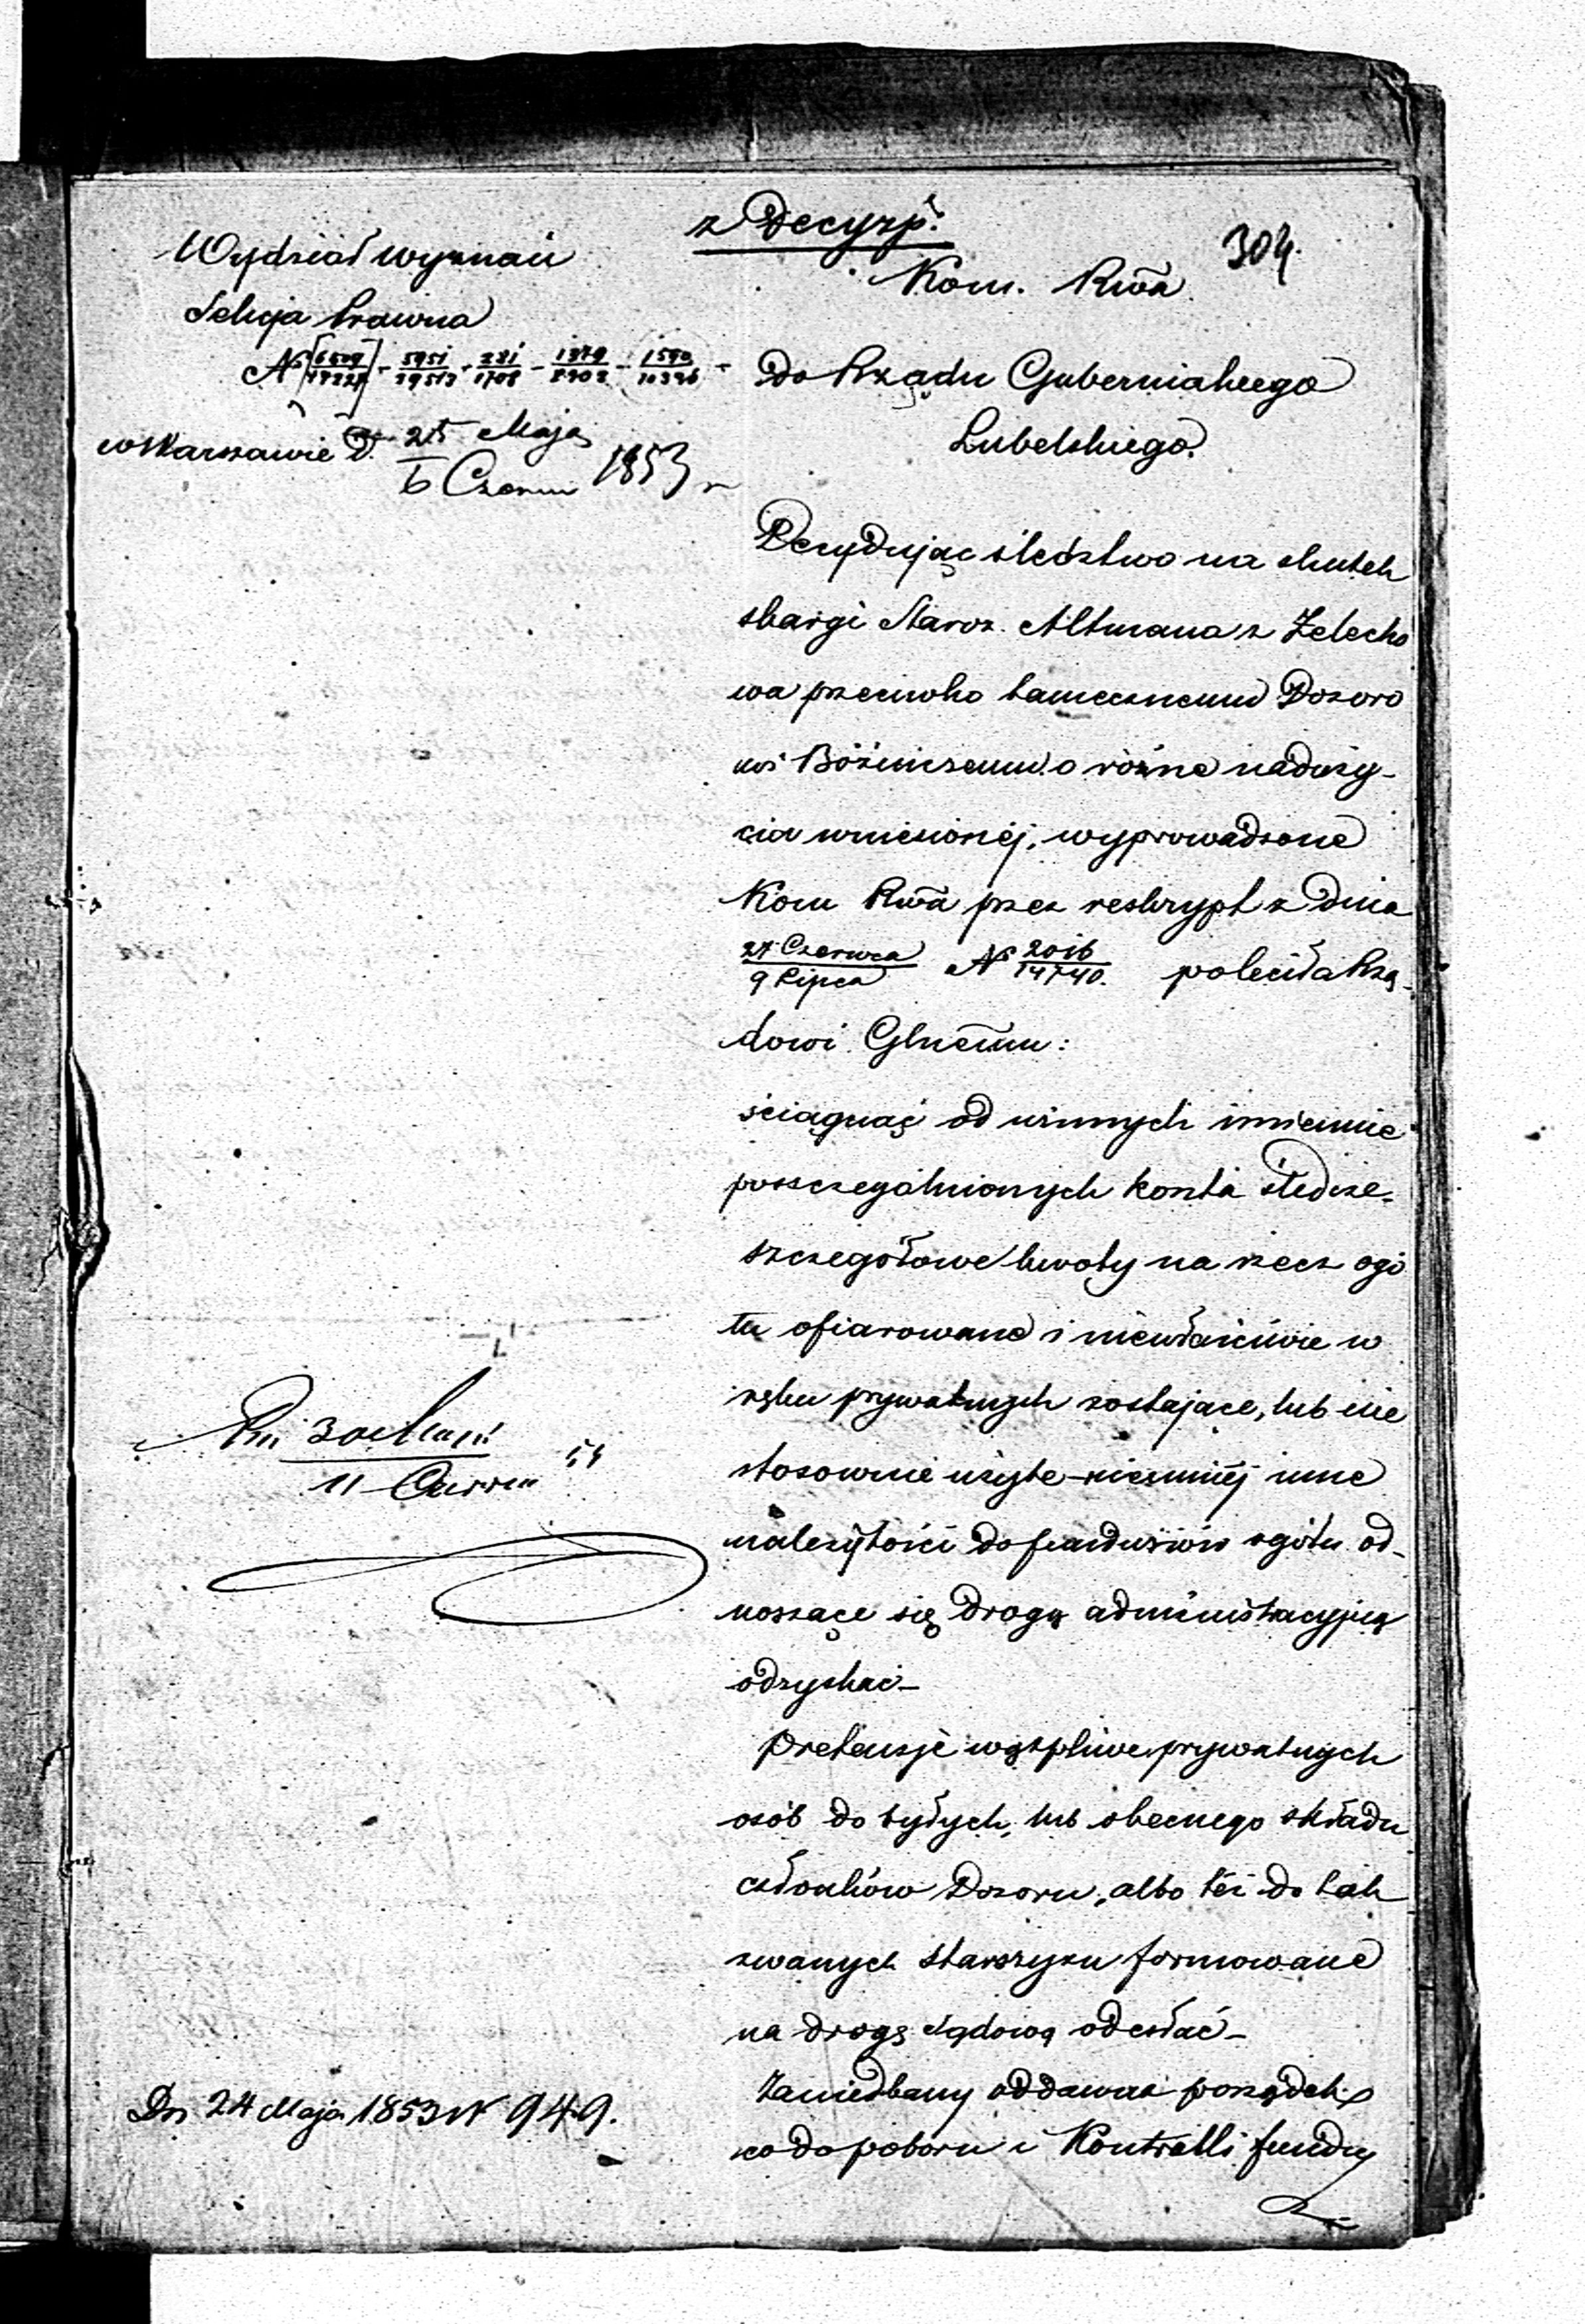 z Decyzp.
304.
Wydział wyznań
Sekcja Prawna
N 5951/29513 - 281/1708 - 1379/8902 - 1590/10396 -
w Warszawie D. 25 Maja / 6 Czerw 1853 r
Kom. Rwa
Do Rządu Gubernialnego
Lubelskiego.
Decydując śledztwo na skutek
skargi Staroz. Altmana z Żelecho
wa przeciwko tamecznemu Dozoro
wi Bóżniczemu o różne naduży-
cia wniesionéj, wyprowadzone
Kom Rwa przez reskrypt z dnia
27 Czerwca / 9 Lipca N 2016/14740. poleciła Rzą-
dowi Glnemu:
ściągnąć od winnych imiennie
poszczególnionych koszta śledcze-
szczegółowe kwoty na rzecz ogó
łu ofiarowane i niewłaściwie w
ręku prywatnych zostające, lub nie
stosownie użyte - niemniéj inne
należytości do funduszów ogółu od-
noszące się drogą administracyjną
odzyskać -
Pretensje wątpliwe prywatnych
osób do byłych, lub obecnego składu
członków Dozoru, albo téż do tak
zwanych starszyzn formowane
na drogę sądową odesłać -
Zaniedbany oddawna porządek
co do poboru i Kontrolli fundu
30 Maja
11 Czerwca
Dn 24 Maja 1853 N 949.